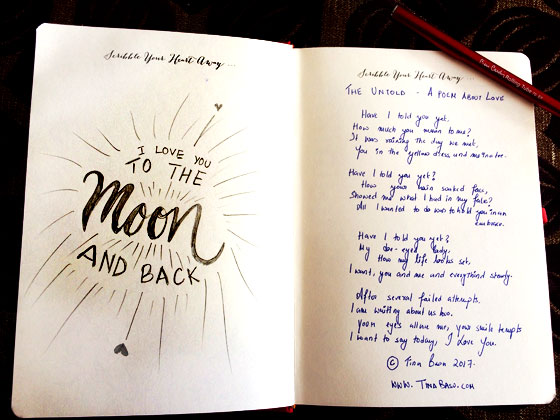 Scribble Your Heart Away ...
I LOVE YOU
TO THE
Moon
AND BACK
Scribble Your Heart Away ...
THE UNTOLD - A POEM ABOUT LOVE
Have I told you yet.
How much you mean to me?
It was raining the day we met,
You in the yellow dress and me in a tee.
Have I told you yet?
How your rain soaked face,
Showed me what I had in my fate?
All I wanted to do was to hold you in an
embrace.
Have I told you yet?
My doe-eyed lady.
How my life looks set,
I want, you and me and everything steady.
After several failed attempts.
I am writing about us two.
Your eyes allure me, your smile tempts
I want to say today, I Love You.
© Tina Basu 2017.
WWW.TINABASU.COM